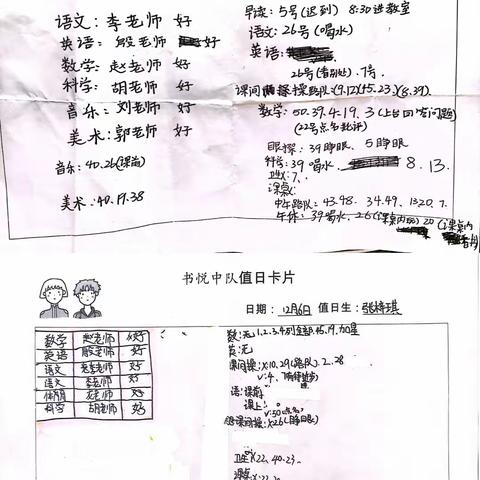 语文：李老师 好
英语：殷老师 好
数学：赵老师 好
科学：胡老师 好
音乐：刘老师 好
美术：郭老师 好
音乐：40.26(课前)
美术：40.19.38
早读：5号(迟到) 8:30进教室
语文：26号(喝水)
英语：
26号(看别处).7号
数学：50.39.4.19.3(上台回答问题)
(22号点名批评)
眼操：39睁眼、5睁眼
科学：39喝水、8.13.
卫生：7、
课桌：
中午路队：43.98. 34.49. 13.20.7.
午休：39喝水、26(课桌内 20(课桌内
书悦中队值日卡片
日期：12月6日 值日生：张梓琪
数学 赵老师 好
英语 殷老师 好
语文 李老师 好
语文 李老师 好
体育 老师 好
科学 胡老师 好
数：无1.2.3.4列全部.45.19.加星
英：无
课间操：X10.29(路队).2.28
语：课前：
课上：
X26(睁眼)
卫生X22.40.23
课桌